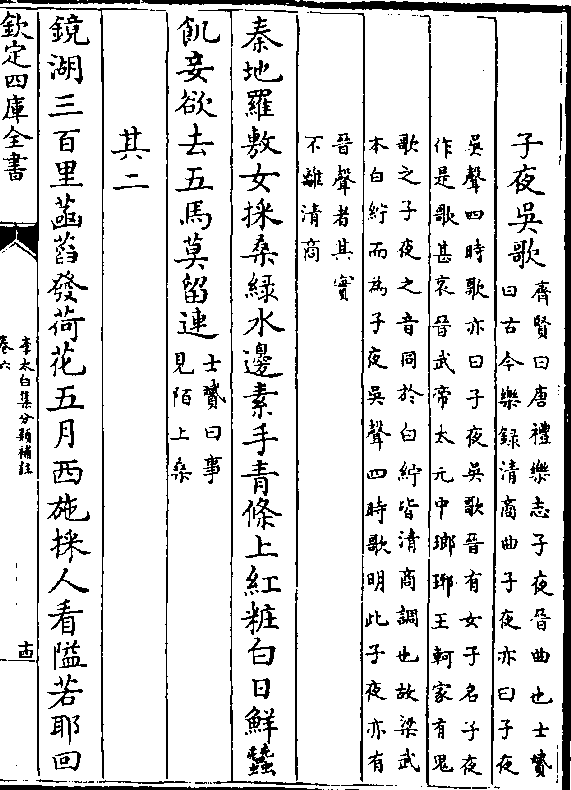 子夜吳歌
齊賢曰唐禮樂志子夜晉曲也士贇
曰古今樂録清商曲子夜亦曰子夜
吳聲四時歌亦曰子夜吳歌晉有女子名子夜
作是歌甚哀晉武帝太元中瑯琊王軻家有鬼
歌之子夜之音同於白紵皆清商調也故梁武
本白紵而為子夜吳聲四時歌明此子夜亦有
晉聲者其實
不離清商
秦地羅敷女採桑緑水邊素手青條上紅粧白日鮮蠶
飢妾欲去五馬莫留連
士贇曰事
見陌上桑
其二
鏡湖三百里菡萏發荷花五月西施採人看隘若耶回
欽定四庫全書
李太白集分類補註
卷六
十四